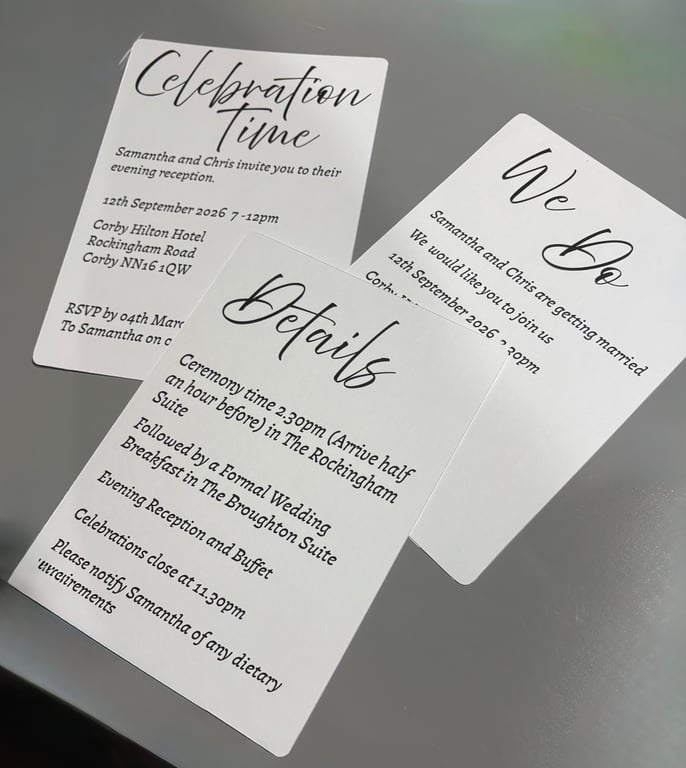 Celebration
Time
Samantha and Chris invite you to their
evening reception.
12th September 2026 7 -12pm
Corby Hilton Hotel
Rockingham Road
Corby NN16 1QW
RSVP by 04th
To Samantha on
We
Do
Samantha and Chris are getting married
We would like you to join us
12th September 2026 2.30pm
Corby
Details
Ceremony time 2.30pm (Arrive half
an hour before) in The Rockingham
Suite
Followed by a Formal Wedding
Breakfast in The Broughton Suite
Evening Reception and Buffet
Celebrations close at 11.30pm
Please notify Samantha of any dietary